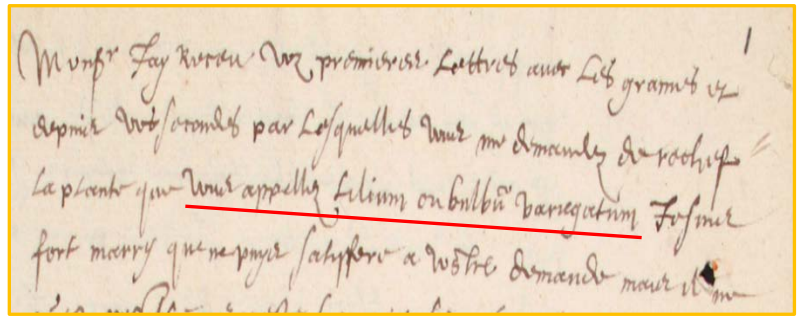 1
Monsr Jay Receu voz premieres Lettres avec Les graines et
depuis voz secondes par Lesquelles vous me demandez de rechef
la plante que vous appellez Lilium ou bulbũ variegatum Je suis
fort marry que ne puys satisfere a vostre demande mais il me